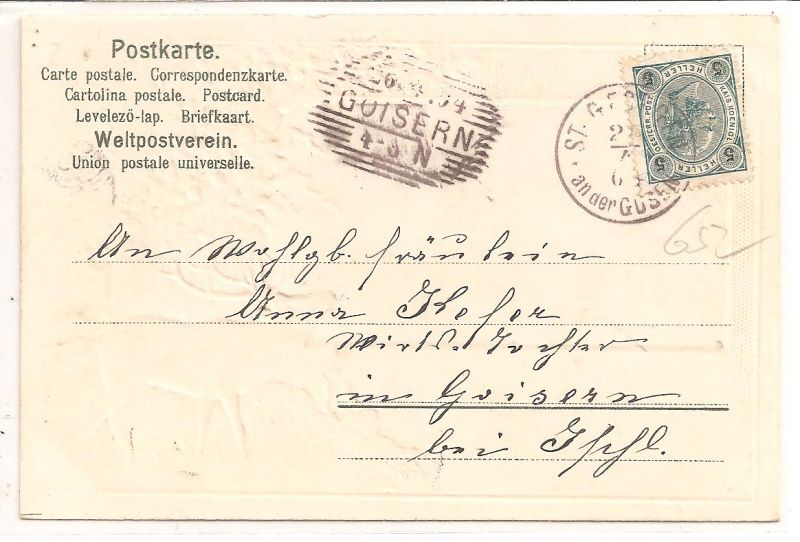 Postkarte.
Carte postale. Correspondenzkarte.
Cartolina postale. Postcard.
Levelező-lap. Briefkaart.
Weltpostverein.
Union postale universelle.
26.4.04
GOISERN
4- N
5 HELLER 5
KAIS. KOENIGL.
OESTERR. POST
5 HELLER 5
ST. 
an der GOSE
652
An Wohlgb. Fräulein
Anna Kefer
Wirts-Tochter
in Goisern
bei Ischl.